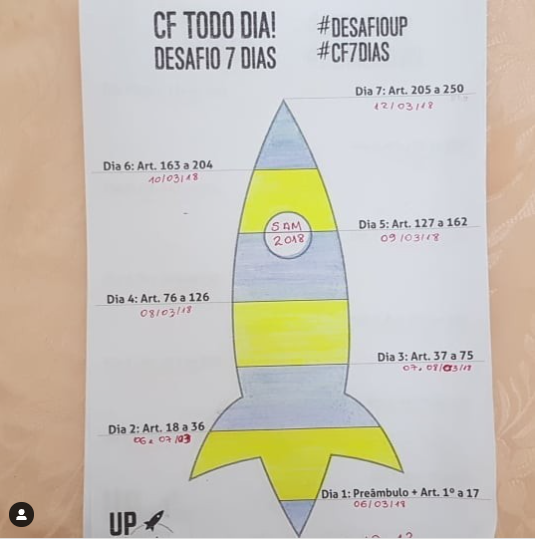 CF TODO DIA!
DESAFIO 7 DIAS
#DESAFIOUP
#CF7DIAS
Dia 7: Art. 205 a 250
12/03/18
Dia 6: Art. 163 a 204
10/03/18
SAM
2018
Dia 5: Art. 127 a 162
09/03/18
Dia 4: Art. 76 a 126
08/03/18
Dia 3: Art. 37 a 75
07. 08/03/18
Dia 2: Art. 18 a 36
06 e 07/03
Dia 1: Preâmbulo + Art. 1º a 17
06/03/18
UP